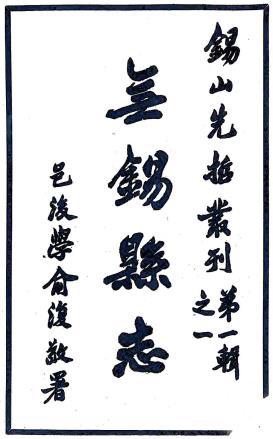 錫山先哲叢刊第一輯之一
無錫縣志
邑後學俞復敬署